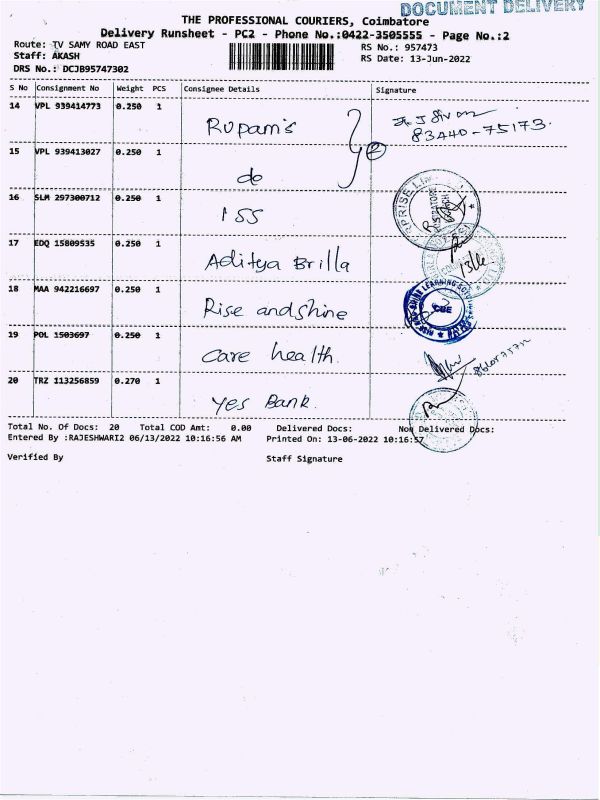 DOCUMENT DELIVERY
THE PROFESSIONAL COURIERS, Coimbatore
Delivery Runsheet - PC2 - Phone No.:0422-3505555 - Page No.:2
Route: TV SAMY ROAD EAST
RS No.: 957473
Staff: AKASH
RS Date: 13-Jun-2022
DRS No.: DCJB95747302
S No Consignment No Weight PCS Consignee Details Signature
14 VPL 939414773 0.250 1 Rupam's
83440-75173
15 VPL 939413027 0.250 1 do 2
16 SLM 297300712 0.250 1 ISS
17 EDQ 15809535 0.250 1 Aditya Brilla
18 MAA 942216697 0.250 1 Rise and shine
CBE
19 POL 1503697 0.250 1 Care health.
20 TRZ 113256859 0.270 1 Yes Bank.
Total No. Of Docs: 20 Total COD Amt: 0.00 Delivered Docs: Non Delivered Docs:
Entered By :RAJESHWARI2 06/13/2022 10:16:56 AM Printed On: 13-06-2022 10:16:57
Verified By Staff Signature